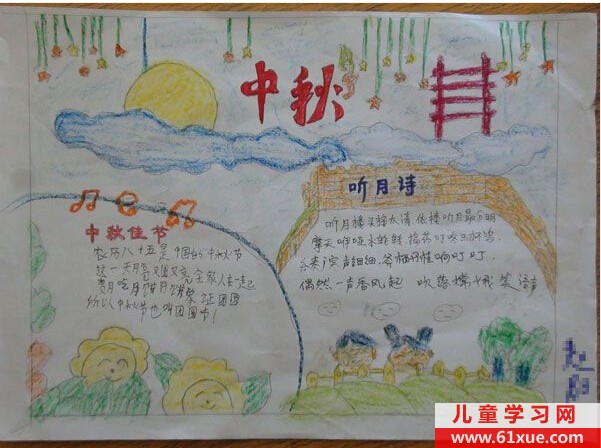 中秋
听月诗
听月楼头接太清 依楼听月最分明
摩天咿哑冰轮转 捣药叮咚玉杵鸣
乐来广寒声细细 斧柯丹桂响叮叮
偶然一声香风起 吹落嫦娥笑语声
中秋佳节
农历八十五是中国的中秋节
这一天月亮又圆又亮 全家人在一起
赏月吃月饼月
所以人中秋节也叫团圆节!
儿童学习网
www.61xue.com